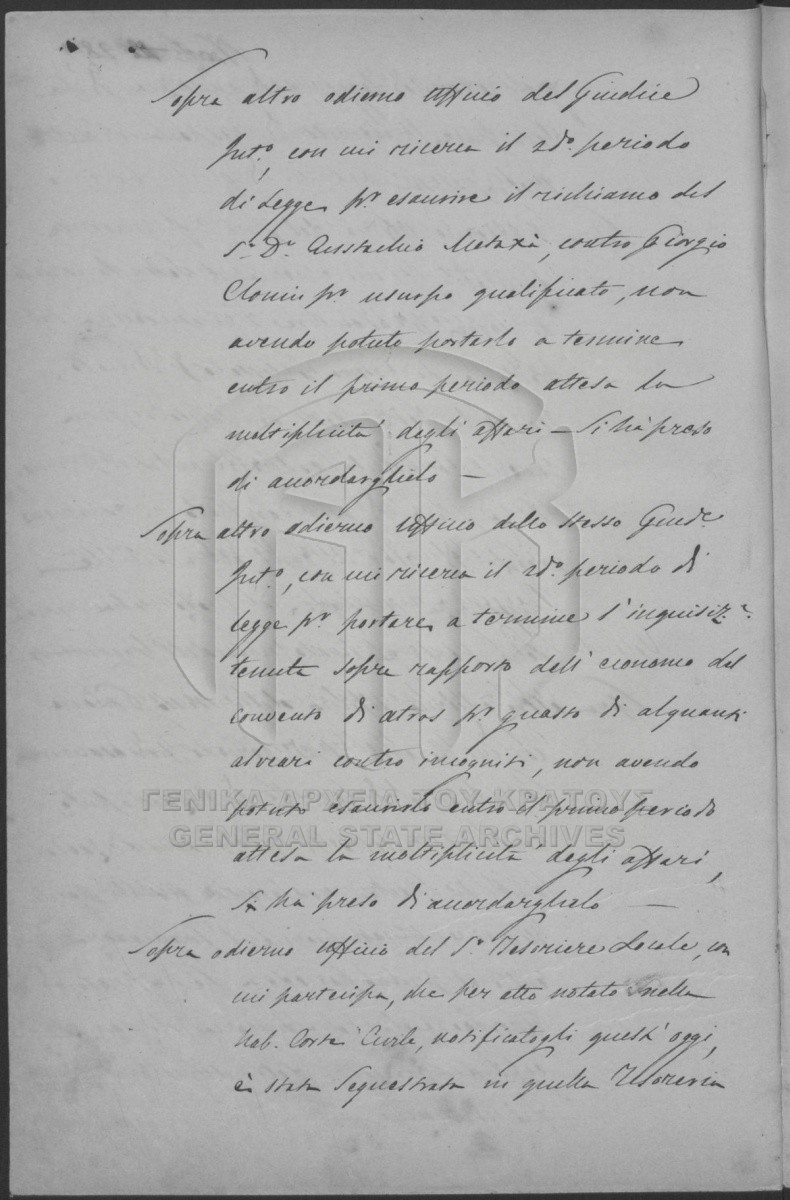 Sopra altro odierno Ufficio del Giudice
Int.º, con cui ricerca il 2dº. periodo
di Legge pr. esaurire il richiamo del
Sr. Dr. Eustachio Metaxà, contro Giorgio
Clonin pr. usurpo qualificato, non
avendo potuto portarlo a termine
entro il primo periodo attesa la
moltiplicità degli affari — Si hà preso
di accordarglielo —
Sopra altro odierno Ufficio dello stesso Giude.
Int.º, con cui ricerca il 2dº. periodo di
legge pr. portare a termine l'inquisize.
tenuta sopra rapporto dell'economo del
convento di Atros pr. guasto di alquanti
alveari contro incogniti, non avendo
potuto esaurirlo entro il primo periodo
attesa la moltiplicità degli affari,
Si hà preso di accordarglielo —
Sopra odierno Ufficio del Sr. Tesoriere Locale, con
cui partecipa, che per atto notato nella
Nab. Corte Civile, notificatogli quest'oggi,
è stata Sequestrata in quella Tesoreria
ΓΕΝΙΚΑ ΑΡΧΕΙΑ ΤΟΥ ΚΡΑΤΟΥΣ
GENERAL STATE ARCHIVES